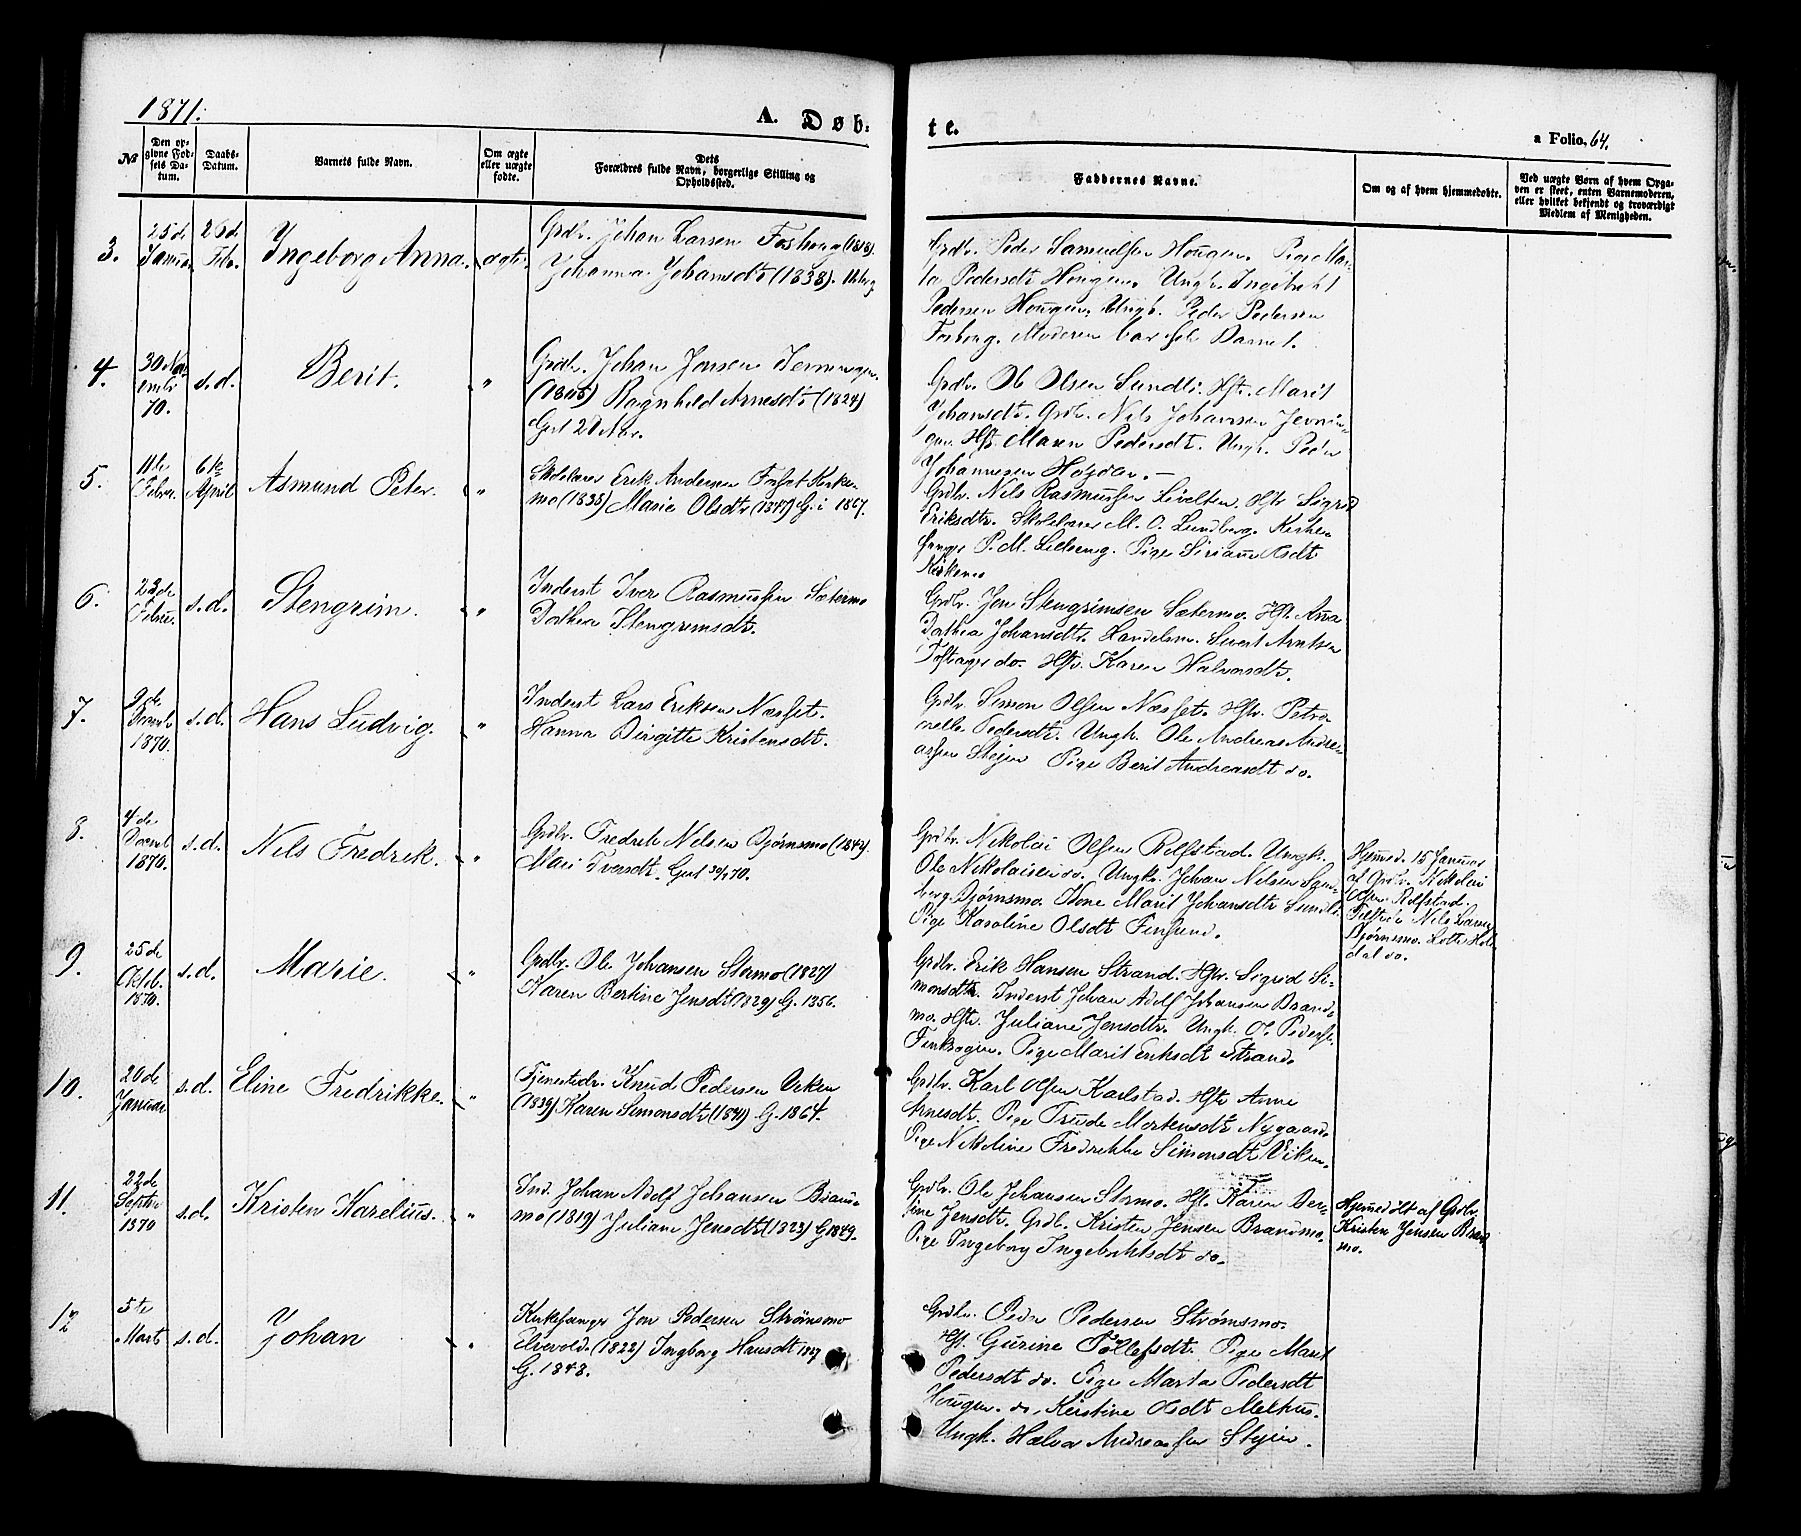 1871.
A. Døb-
te.
a Folio, 64.
№
Den op-
givne Fød-
sels Da-
tum.
Daabs-
Datum.
Barnets fulde Navn.
Om ægte
eller uægte
fødte.
Dets
Forældres fulde Navn, borgerlige Stilling og
Opholdssted.
Faddernes Navne.
Om og af hvem hjemmedøbte.
Ved uægte Børn af hvem Opga-
ven er skeet, enten Barnemoderen,
eller hvilket bekjendt og troværdigt
Medlem af Menigheden.
3.
25de
Januar
26de
Feb.
Ingeborg Anna.
ægte.
Grdbr. Johan Larsen Foshoug (1818).
Johanna Johansdt. (1838).
Grdbr. Peder Samuelsen Hougen. Pige Mar-
ta Pedersdt Hougen. Ungk. Ingebrikt
Pedersen Hougen. Ungk. Peder Pedersen
Moderen bar selv Barnet.
4.
30 Nov
embr
70.
s.d.
Berit.
"
Grdbr. Johan Jonsen
Ragnhild Arnesdt (1824)
Grdbr. Ole Olsen Sundli. Hst. Marit
Johansdt. Grdb. Nils Johansen Jevnin-
gen. Hst. Maren Pedersdt. Ungk. Peder
Johannesen
5.
11te
Febru.
6te
April
Asmund Peter.
"
Skolelærer Erik Andersen Fosfot Kirke-
mo (1835) Marie Olsdtr (1847) G. i 1867.
Grdbr. Nils Rasmussen Hstr Sigrid
Eriksdtr. Skolelærer M. O. Lundberg. Kirke-
sanger P. M. Pige
Kirkemo
6.
23de
Febru.
s.d.
Stengrim.
"
Inderst Iver Rasmussen Sætermo
Dorthea Stengrimsdt.
Grdbr. Jon Stengrimsen Sætermo. Hst. Anna
Dorthea Johansdtr. Landelsm. Sivert Arntsen
do. Hstr. Karen Halvorsdtr.
7.
9de
Decembr
1870.
s.d.
Hans Ludvig.
"
Inderst Lars Eriksen Næsset.
Hanna Birgitte Kristensdt.
Grdbr. Simon Olsen Næsset. Hstr. Petro-
nelle Pedersdt. Ungk. Ole Andreas Andre-
assen Stejen Pige Berit Andreasdt do.
8.
4de
Decemb
1870.
s.d.
Nils Fredrik.
"
Grdbr. Fredrik Nilsen Bjørnsmo (1842).
Mari Iversdt.
Grdbr. Nikolai Olsen Rolfstad. Ungk.
Ole Nikolaisen do. Ungk. Johan Nilsen
Bjørnsmo. Kone Marit Johansdtr Sundli.
Pige Karoline Olsdt
Hjemmed. 15 Januar
af Grdbr. Nikolai
Olsen Rolfstad.
Tilstede Nils Larsen
Bjørnsmo. Lotte Hol-
dal do.
9.
25de
Oktob.
1870.
s.d.
Marie.
"
Grdbr. Ole Johansen Stormo (1827)
Karen Bertine Jensdt (1829) G. 1856.
Grdbr. Erik Hansen Strand. Hstr. Sigrid Si-
monsdtr. Inderst Johan Adolf Johansen Brand-
mo. Hstr. Juliane Jensdtr. Ungk. O. Peders.
Finkrogen. Pige Marit Eriksdt Strand.
10.
20de
Januar
s.d.
Eline Fredrikke.
"
Tjenestedr. Knud Pedersen Viken
(1839) Karen Simonsdt (1841). G. 1864.
Grdbr. Karl Olsen Karlstad. Hstr Anne
Arnesdt. Pige Trude Mortensdt Nygaard.
Pige Nikoline Fredrikke Simonsdt Viken.
11.
22de
Septbr
1870
s.d.
Kristen Karelius.
"
Ind. Johan Adolf Johansen Brand-
mo (1819) Juliane Jensdt (1823) G. 1849.
Grdbr. Ole Johansen Stormo. Hst. Karen Ber-
tine Jensdt. Grdb. Kristen Jensen Brandmo.
Pige Ingeborg Ingebriktsdt do.
Hjemmedøbt af Grdbr.
Kristen Jensen Brand
mo.
12
5te
Marts
s.d.
Johan
"
Kirkesanger Jon Pedersen Strømsmo
Elvevold. (1822) Ingborg Hansdt 1827
G. 1848.
Grdbr. Peder Pedersen Strømsmo.
Hst. Gurine Tollefsdt. Pige Marit
Pedersdt do. Pige Marta Pedersdt
Hougen. do. Kirstine Olsdt Melhus.
Ungk. Halvor Andreassen Stejen.